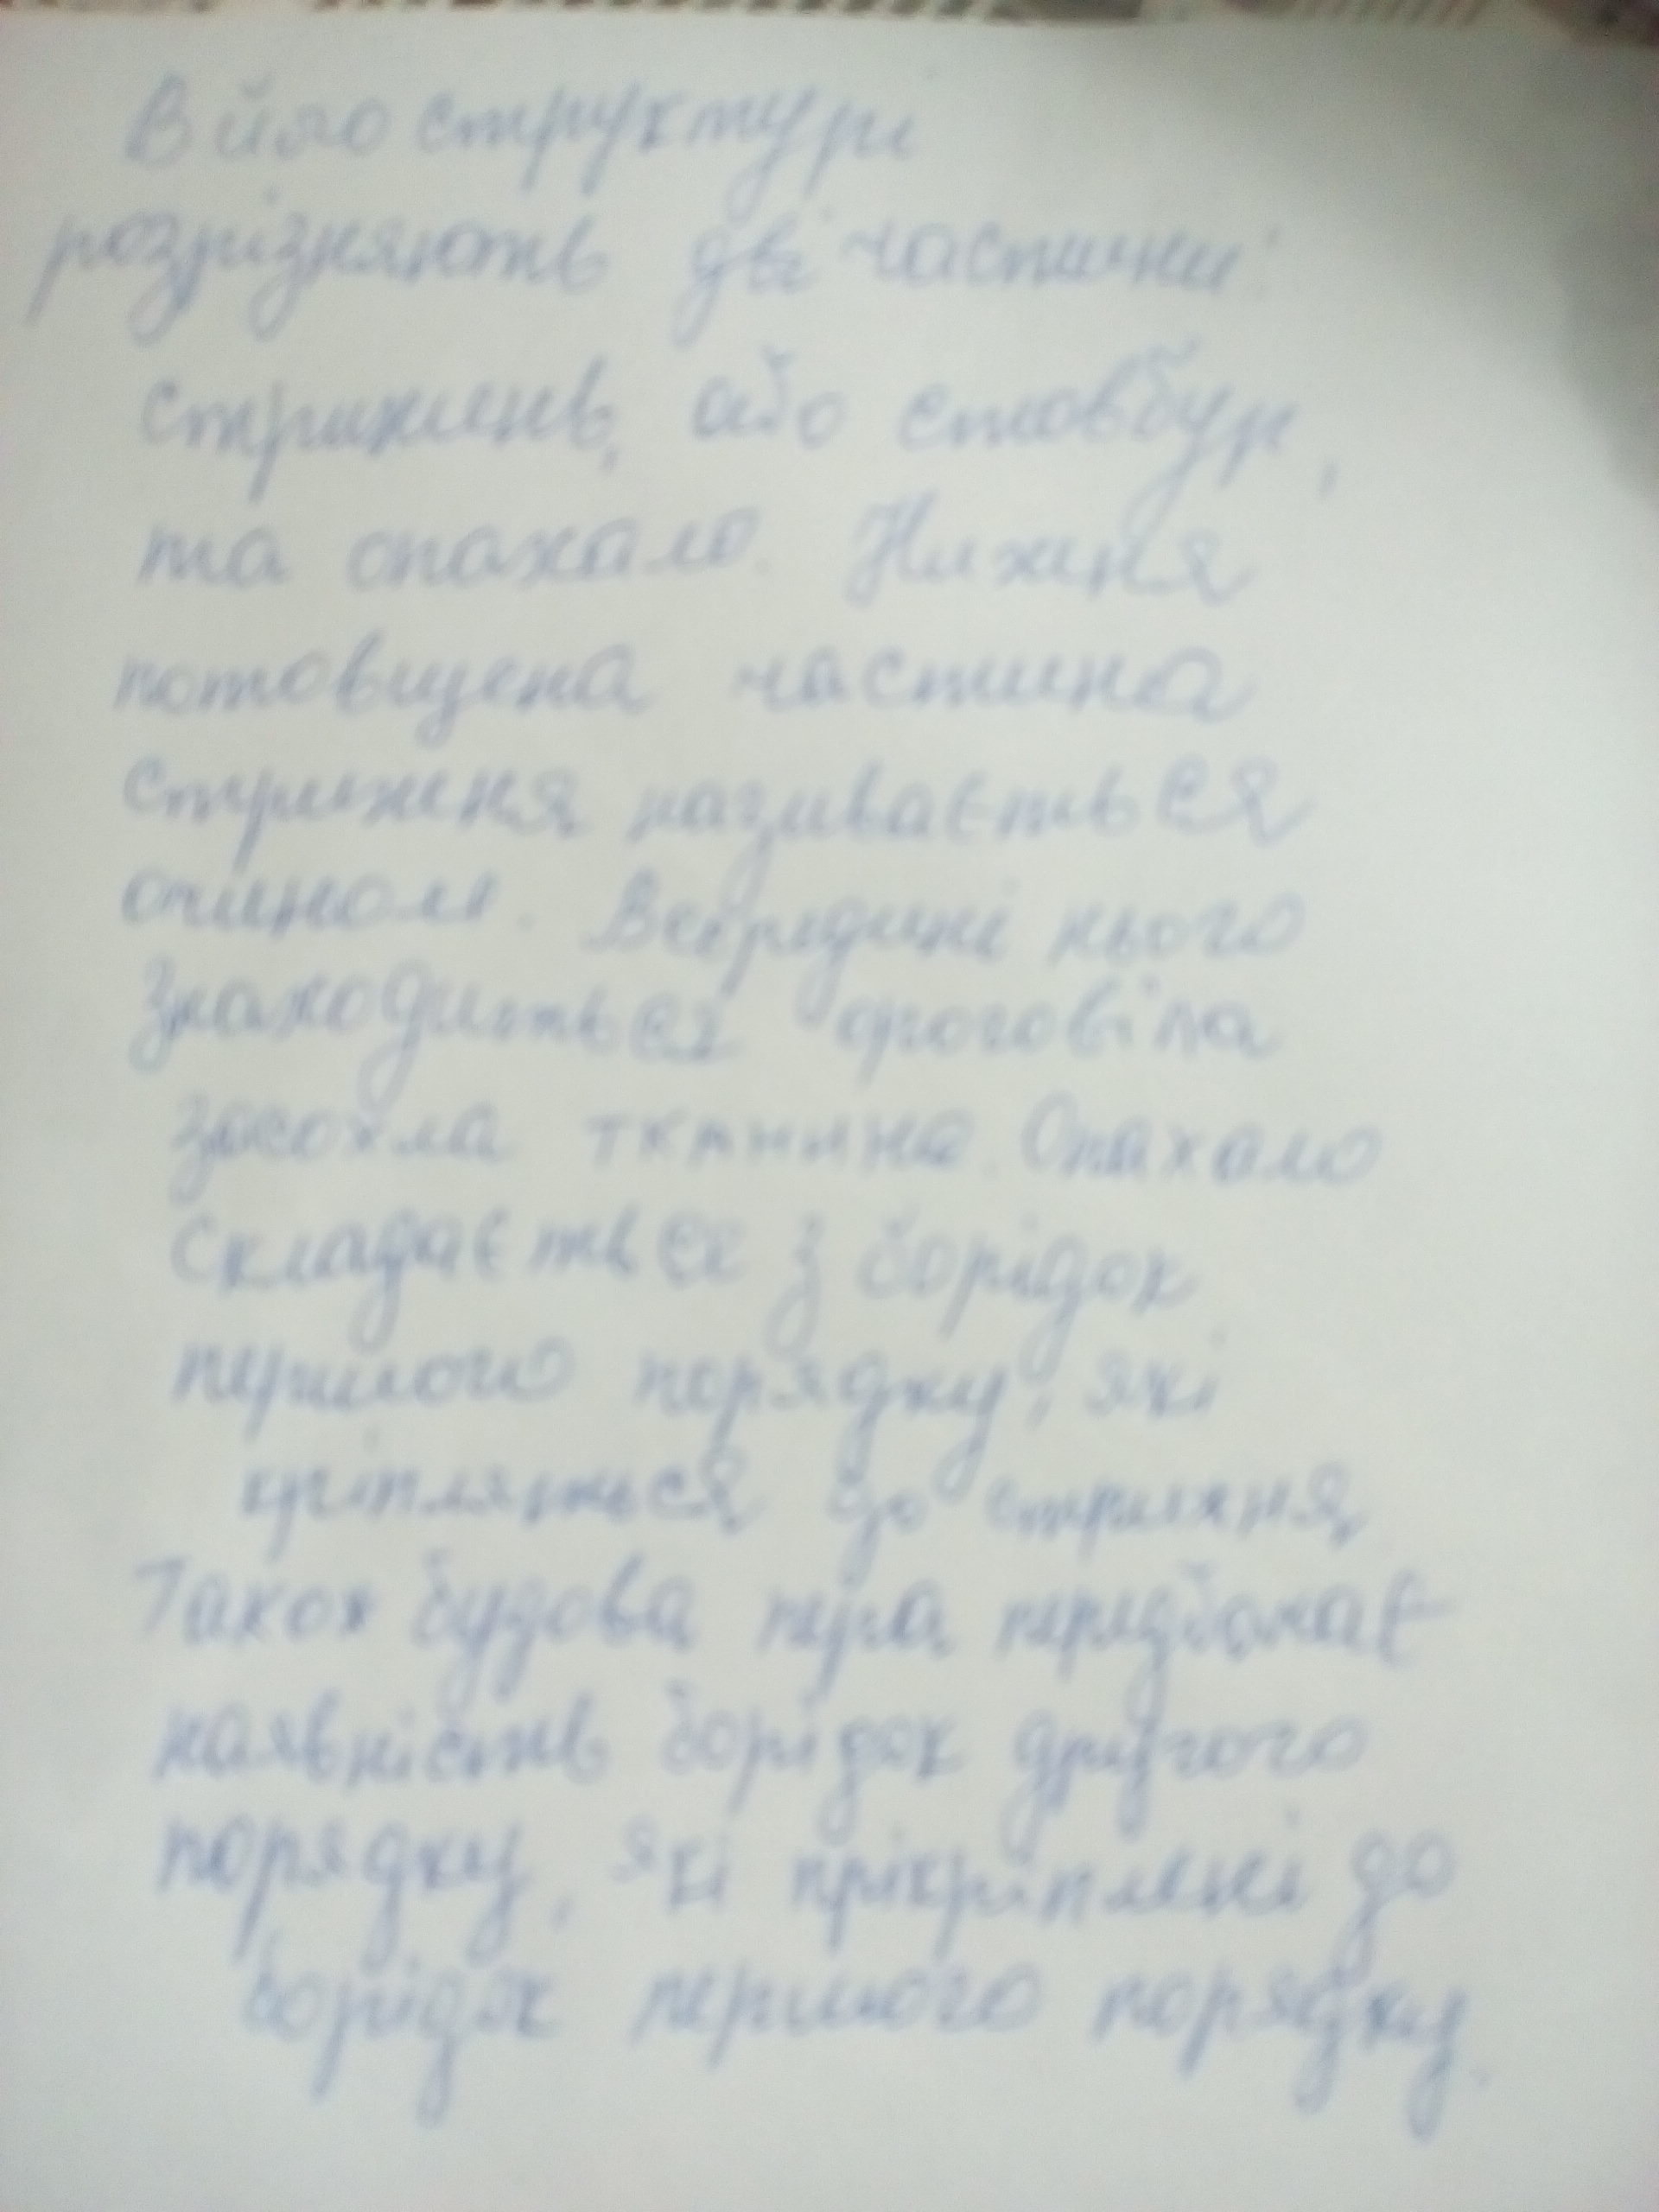 В його структурі
розрізняють дві частини:
стрижень, або стовбур,
та опахало. Нижня
потовщена частина
стрижня називається
очином. Всередині нього
знаходиться орогоvіла
засохла тканина. Опахало
складається з борідок
першого порядку, які
кріпляться до стрижня
Також будова пера передбачає
наявність борідок другого
порядку, які прікріплені до
борідок першого порядку.